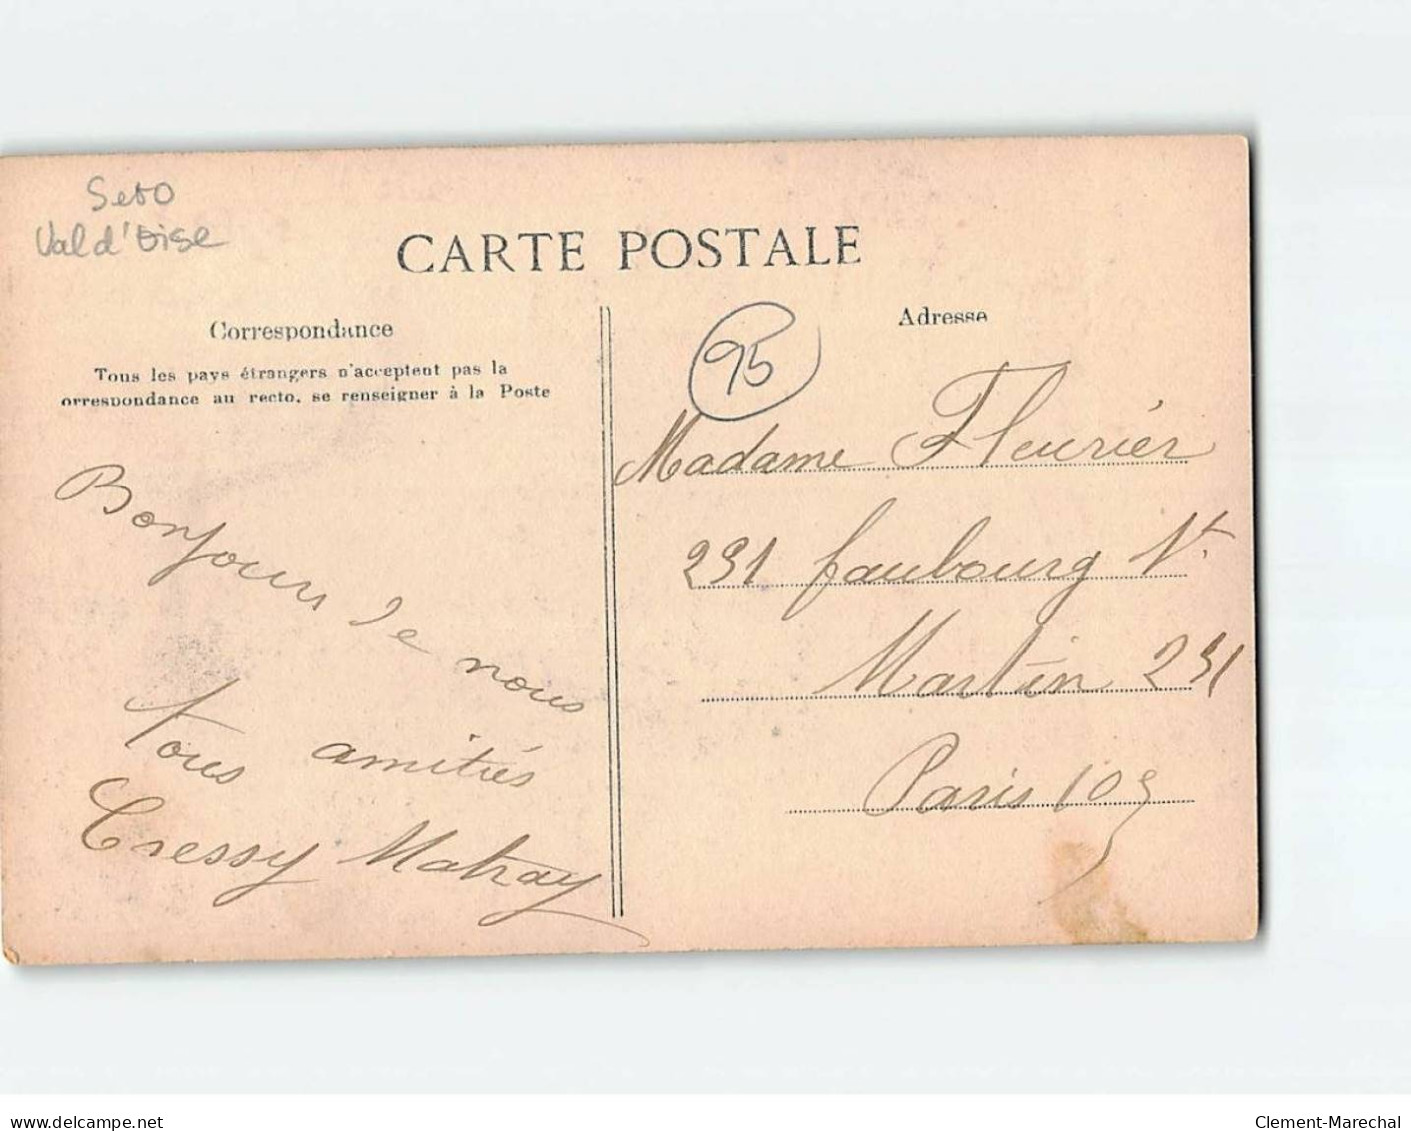 Val d'Oise
CARTE POSTALE
Correspondance
Tous les pays étrangers n'acceptent pas la
orrespondance au recto, se renseigner à la Poste
Adresse
95
Bonjour de nous
tous amitiés
Cressy Matray
Madame Fleurier
231 faubourg St
Martin 231
Paris 10
www.delcampe.net
Clement-Marechal